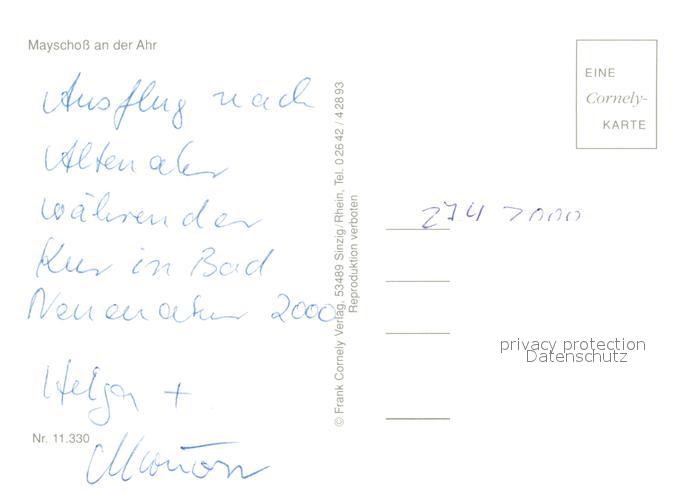 Mayschoß an der Ahr
Ausflug nach
Altenahr
während der
Kur in Bad
Neuenahr 2000
Helga +
Nr. 11.330
© Frank Cornely Verlag, 53489 Sinzig/Rhein, Tel. 0 26 42 / 4 28 93
Reproduktion verboten
EINE
Cornely-
KARTE
privacy protection
Datenschutz